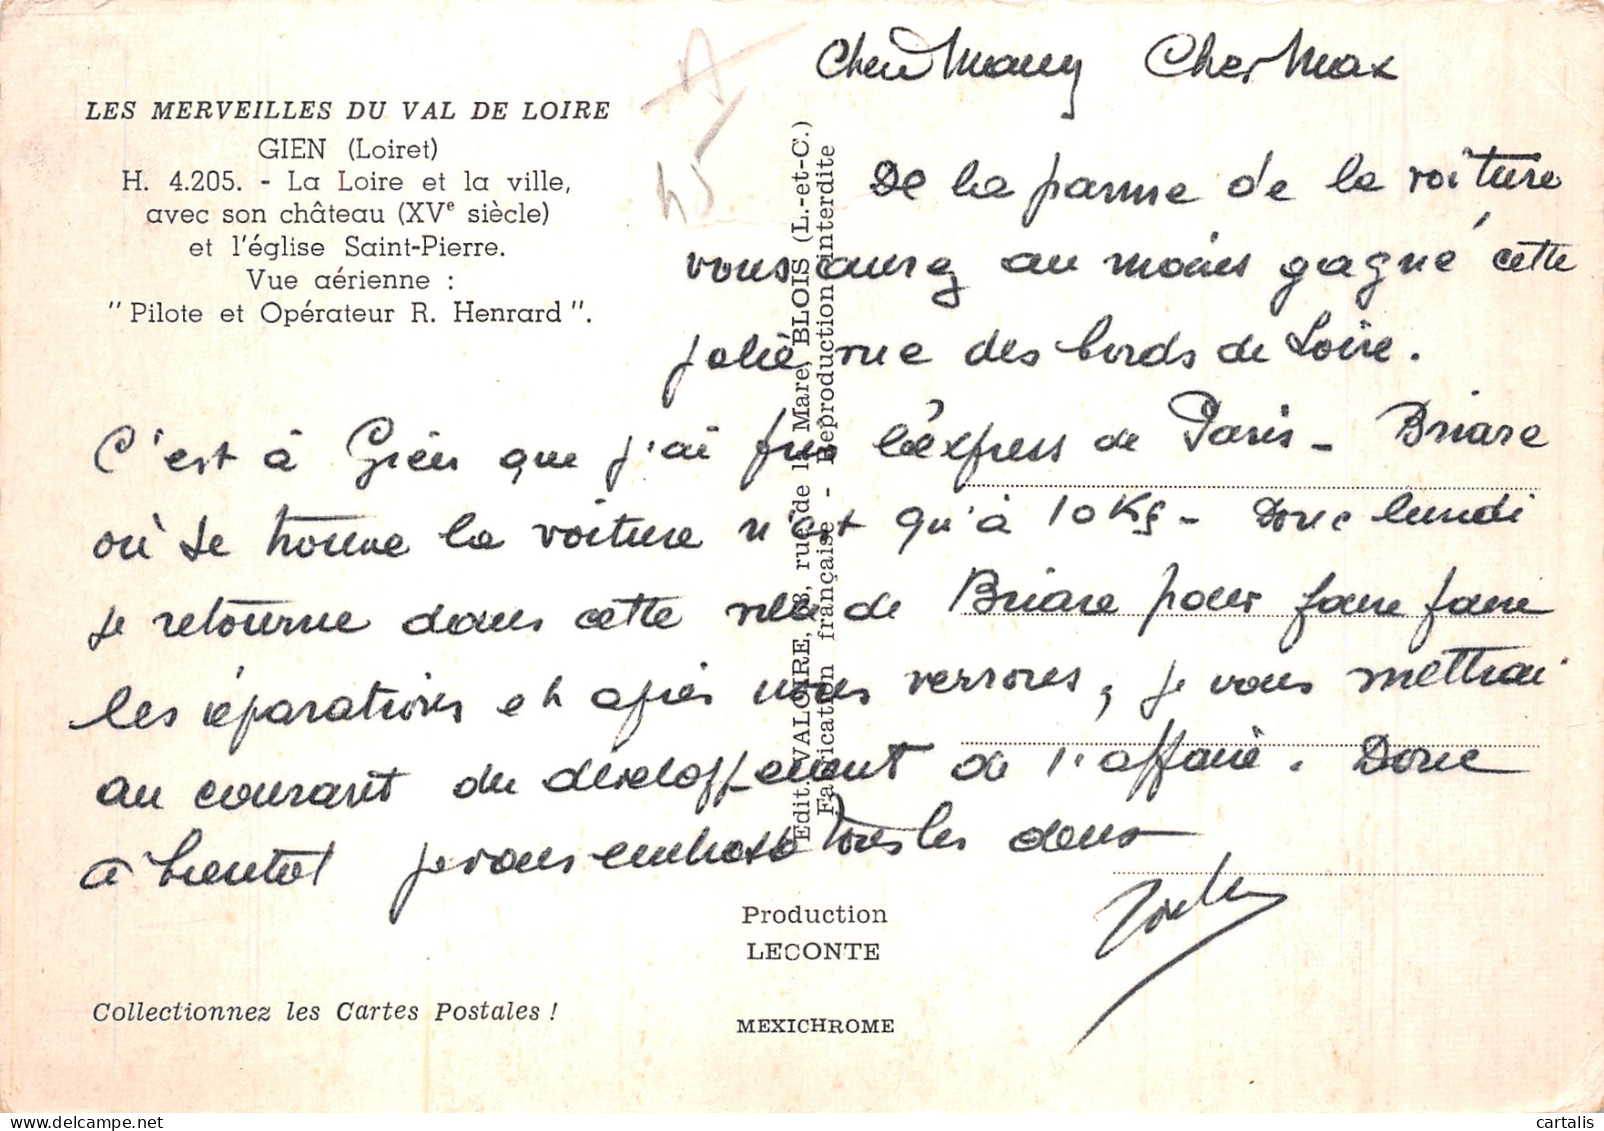 Cher Max
LES MERVEILLES DU VAL DE LOIRE
GIEN (Loiret)
H. 4.205. - La Loire et la ville,
avec son château (XVe siècle)
et l'église Saint-Pierre.
Vue aérienne :
"Pilote et Opérateur R. Henrard".
A
45
De la panne de la voiture
vous aurez au moins gagné cette
jolie vue des bords de Loire.
C'est à Gien que j'ai pris l'express de Paris - Briare
où se trouve la voiture n'est qu'à 10 Kg - Donc lundi
je retourne dans cette ville de Briare pour faire faire
les réparations et après nous verrons, je vous mettrai
au courant du développement de l'affaire. Donc
à bientôt je vous embrasse tous les deux
Edit. VALOIRE, rue de la Mare, BLOIS (L.-et-C.)
Fabrication française - Reproduction interdite
Production
LECONTE
MEXICHROME
Collectionnez les Cartes Postales !
cartalis